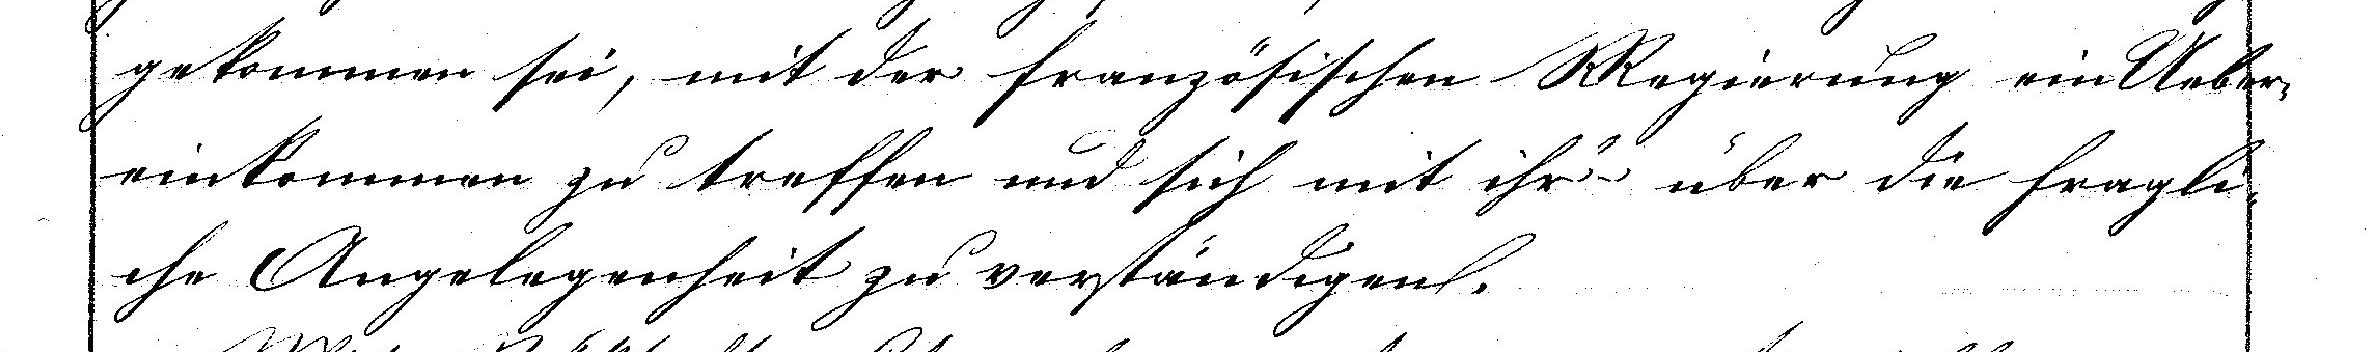 gekommen sei, mit der französischen Regierung ein Ueber-
einkommen zu treffen und sich mit ihr über die fragli-
che Angelegenheit zu verständigen.